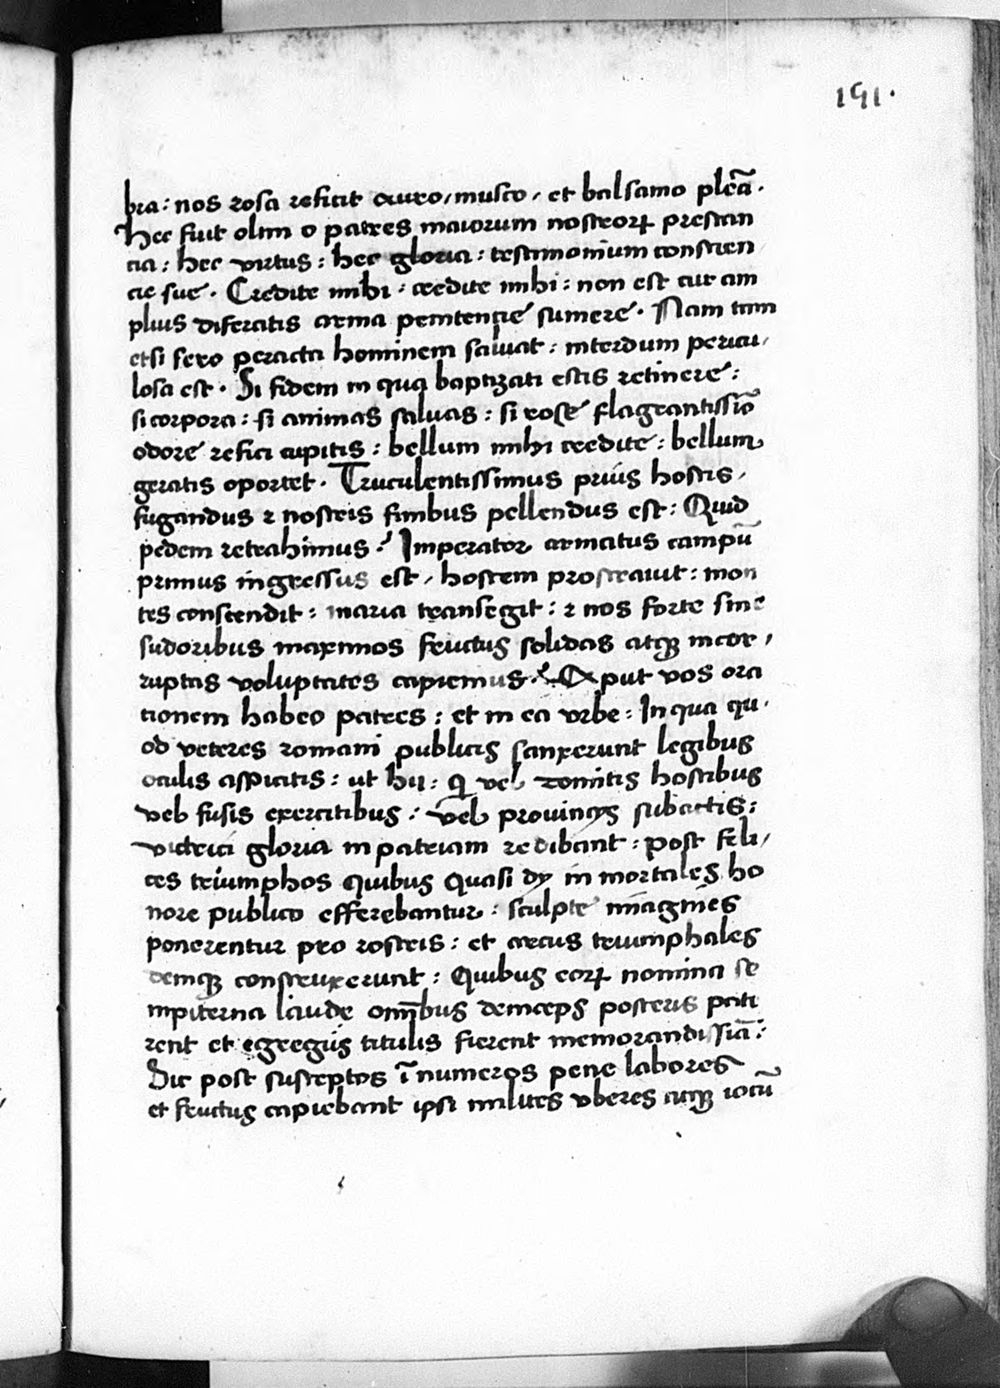 191.
bra: nos rosa reficit auro, musco, et balsamo plēa.
Hec fuit olim o patres maiorum nostrorꝝ prestan
cia: hec virtus: hec gloria: testimonium conscien
cie sue. Credite mihi: credite mihi: non est cur am
plius diferatis arma penitentie sumere. Nam tam
etsi sero peracta hominem saluat: interdum pericu,
losa est. Si fidem in qua baptizati estis retinere:
si corpora: si animas saluas: si rose flagrantissīo
odore refici cupitis: bellum mihi credite: bellum
geratis oportet. Truculentissimus prius hostis,
fugandus ⁊ nostris finibus pellendus est: Quid
pedem retrahimus? Imperator armatus campū
primus ingressus est, hostem prostrauit: mon
tes conscendit: maria transegit: ⁊ nos forte sine
sudoribus maximos fructus solidas atqꝫ incor,
ruptas voluptates capiemus? Aput vos ora
tionem habeo patres: et in ea vrbe: In qua qu,
od veteres romani publicis sanxerunt legibus
oculis aspicitis: ut hij: qi vel domitis hostibus
vel fusis exercitibus: vel prouincijs subactis:
victrici gloria in patriam redibant: post feli,
ces triumphos quibus quasi dij in mortales ho
nore publico efferebantur: sculpte imagines
ponerentur pro rostris: et arcus triumphales
demqꝫ construxerunt: Quibus eorꝝ nomina se
mpiterna laude omībus deinceps posteris pate
rent et egregijs titulis fierent memorandissīa:
Sic post susceptos īnumeros pene labores
et fructus capiebant ipsi milites vberes atqꝫ iocū